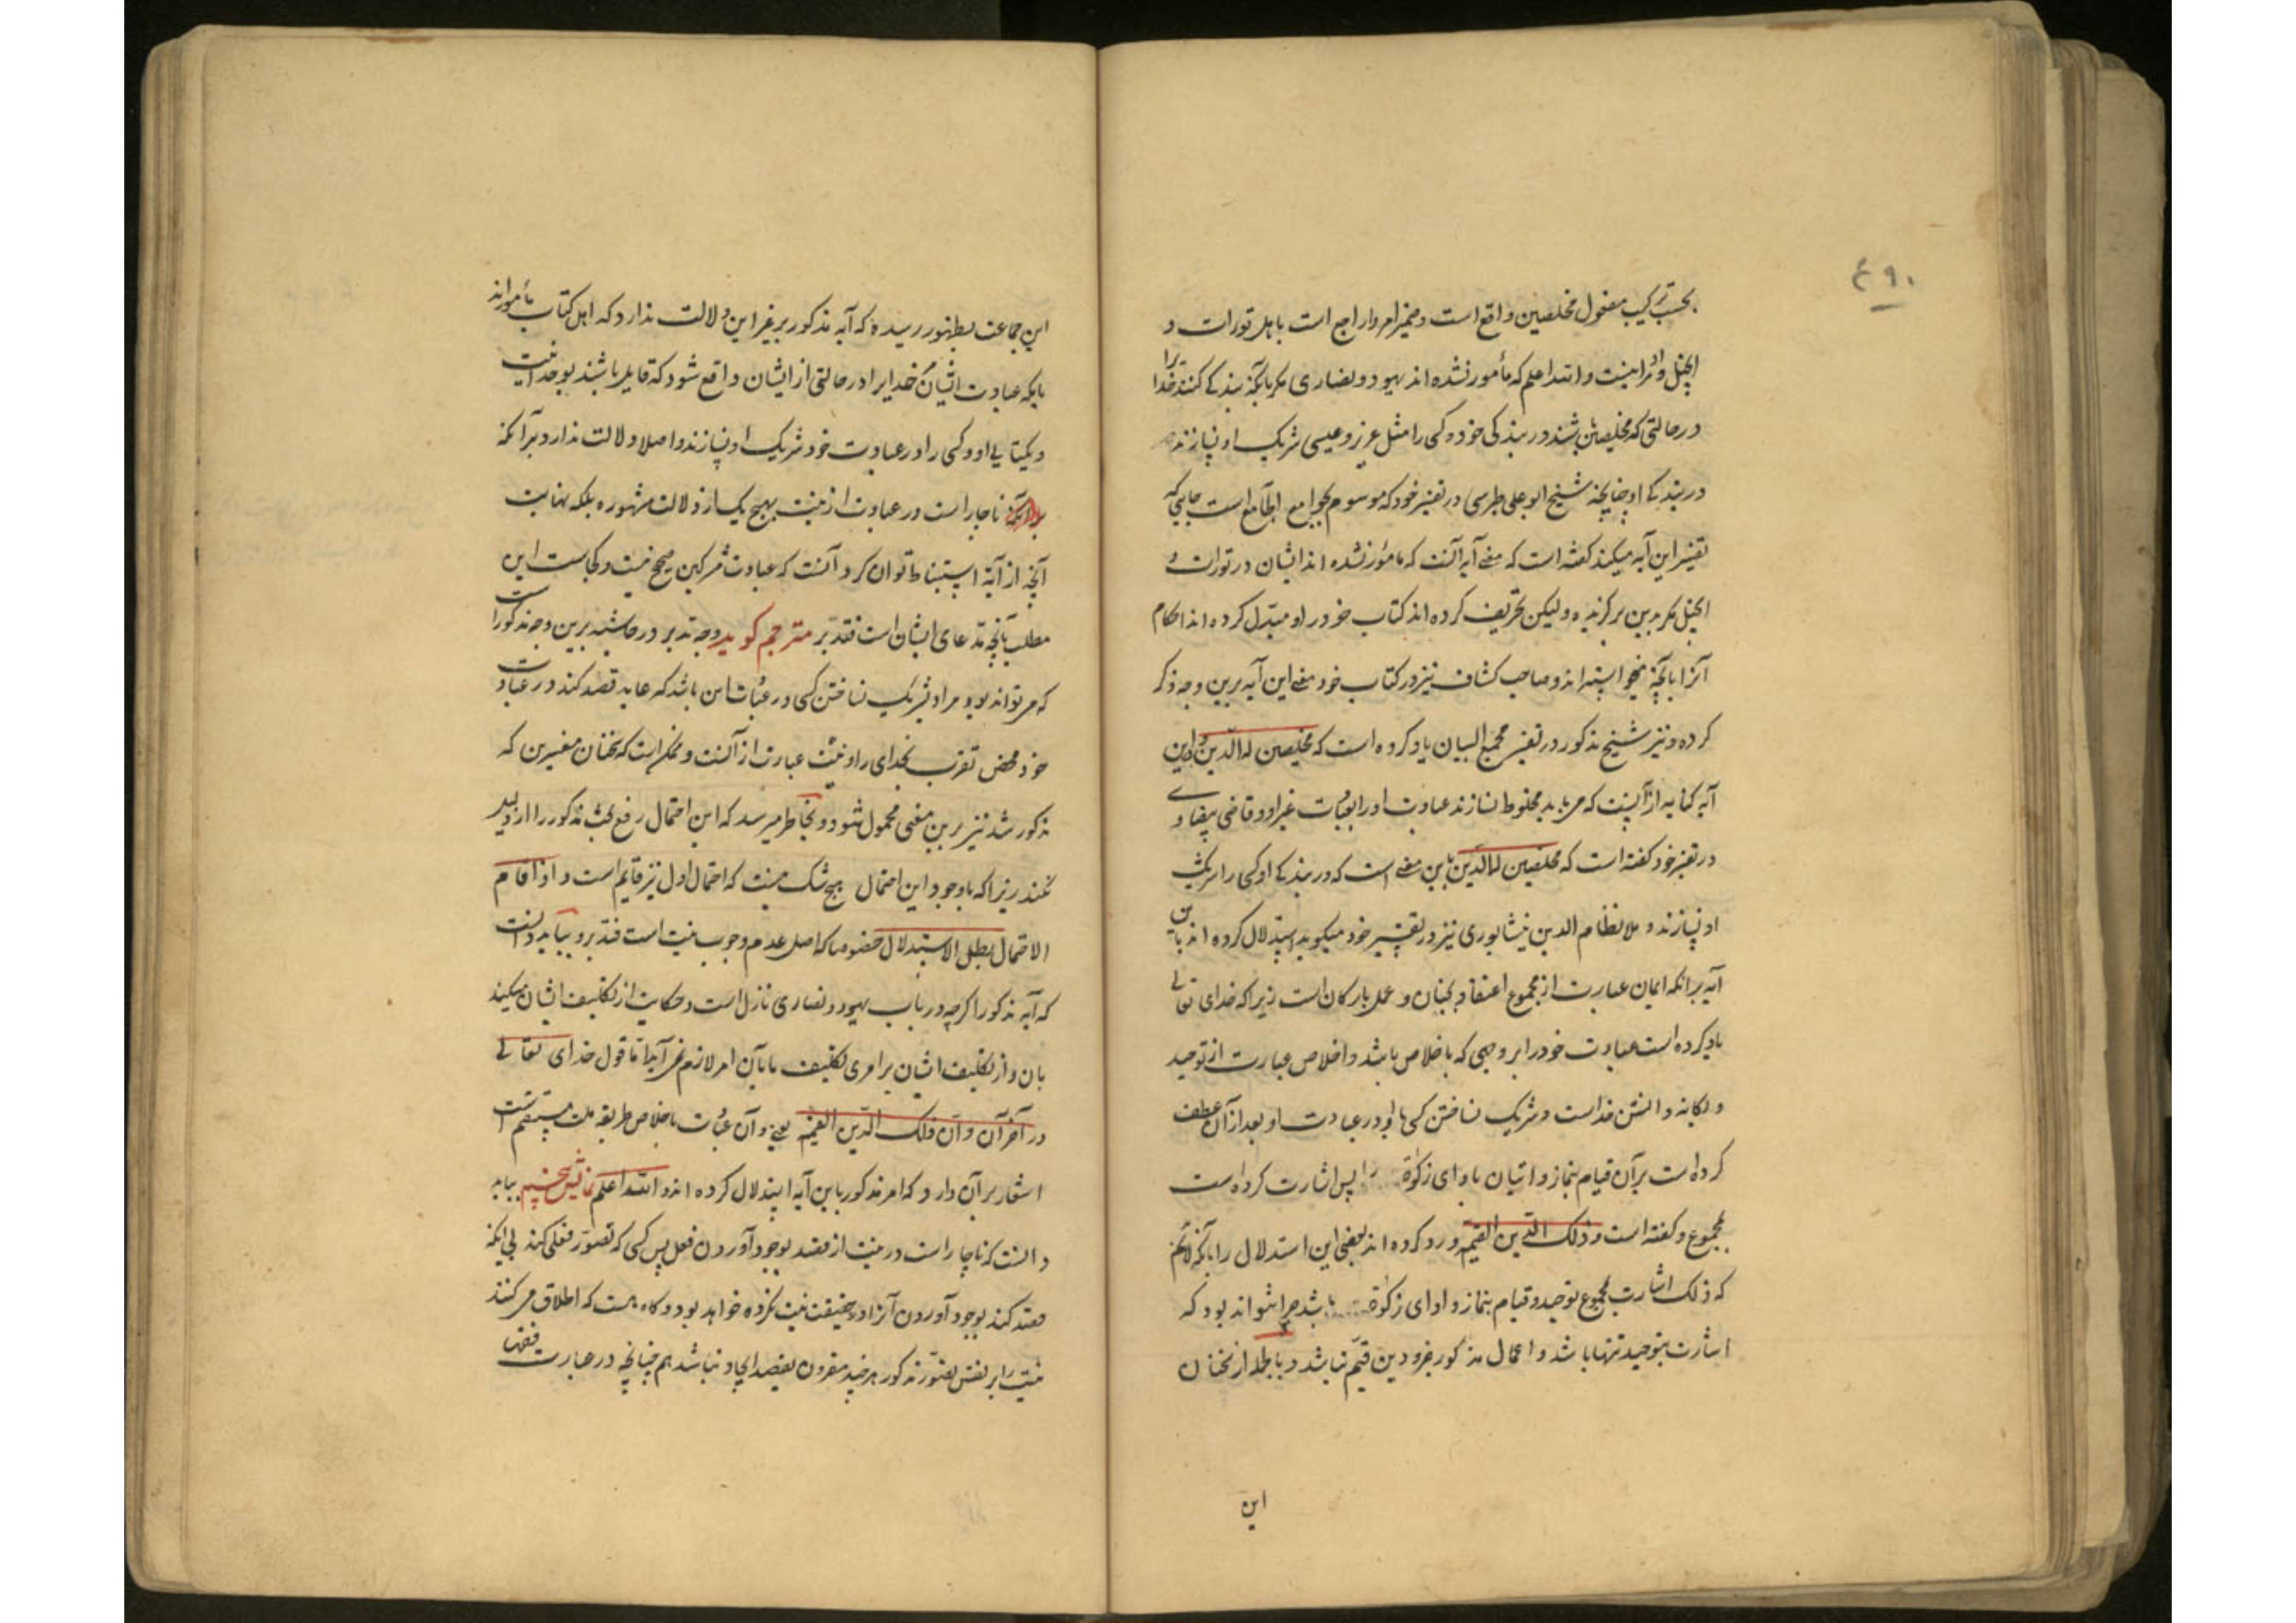 ۴۹۰
بحسب ترکیب مفعول مخلصین واقع است و ضمیر امروا راجع است باهل تورات و
انجیل و مراد اینست والله اعلم که مأمور نشده اند یهود و نصاری مگر بآنکه بندکی کنند خدا را
در حالتی که مخلصین باشند در بندکی خود و کسی را مثل عزیر و عیسی شریک او نسازند
در بندکی او چنانچه شیخ ابو علی طبرسی در تفسیر خود که موسوم بجوامع الجامع است جایی که
تفسیر این آیه میکند کفته است که معنی آیه آنست که مامور نشده اند ایشان در تورات و
انجیل مکر بدین برکزیده ولیکن تحریف کرده اند کتاب خود را و مبدّل کرده اند احکام
آنرا بآنچه میخواسته اند و صاحب کشاف نیز در کتاب خود معنی این آیه برین وجه ذکر
کرده و نیز شیخ مذکور در تفسیر مجمع البیان یاد کرده است که مخلصین له الدین در این
آیه کنایه از آنست که می باید مخلوط نسازند عبادت او را بعبادت غیر او و قاضی بیضاوی
در تفسیر خود کفته است که مخلصین له الدین باین معنی است که در بندکی او کسی را شریک
او نسازند و ملا نظام الدین نیشابوری نیز در تفسیر خود میکوید استدلال کرده اند باین
آیه برانکه ایمان عبارت از مجموع اعتقاد بجنان و عمل بارکان است زیرا که خدای تعالی
یاد کرده است عبادت خود را بر وجهی که باخلاص باشد و اخلاص عبارت از توحید
و یکانه دانستن خداست و شریک نساختن کسی با او در عبادت او بعد از آن عطف
کرده است برآن قیام بنماز و اتیان بادای زکوة را پس اشارت کرده است
بمجموع و کفته است و ذلک الدین القیم و رد کرده اند بعضی این استدلال را بآنکه لانم
که ذلک اشارت بمجموع توحید و قیام بنماز و ادای زکوة باشد چرا نتواند بود که
اشارت بتوحید تنها باشد و اعمال مذکور جزو دین قیّم نباشد و بالجمله از سخنان
این
این جماعت بظهور رسیده که آیه مذکور بر غیر این دلالت ندارد که اهل کتاب مأمورند
بانکه عبادت ایشان خدایرا در حالتی از ایشان واقع شود که قایل باشند بوحدانیت
و یکتایی او و کسی را در عبادت خود شریک او نسازند و اصلا دلالت ندارد برآنکه
ناچار است در عبادت از نیت بهیچ یک از دلالات مشهوره بلکه نهایت
آنچه از آیه استنباط توان کرد آنست که عبادت مشرکین صحیح نیست و کجاست این
مطلب بآنچه مدّعای ایشان است فتدبّر مترجم کوید وجه تدبر در حاشیه برین وجه مذکور است
که می تواند بود مراد بشریک نساختن کسی در عبادت این باشد که عابد قصد کند در عبادت
خود محض تقرب بخدای را و نیت عبارت از آنست و ممکن است که سخنان مفسرین که
مذکور شد نیز برین معنی محمول شود و بخاطر میرسد که این احتمال رفع بحث مذکور را از دلیل
نمیکند زیرا که با وجود این احتمال هیچ شک نیست که احتمال اول نیز قایم است و اذا قام
الاحتمال بطل الاستدلال خصوصا که اصل عدم وجوب نیت است فتدبر و بباید دانست
که آیه مذکور اکرچه در باب یهود و نصاری نازل است و حکایت از تکلیف ایشان میکند
بآن و از تکلیف ایشان بر امری تکلیف ما بآن امر لازم نمی آید امّا قول خدای تعالی
در آخر آن و آن ذلک الدّین القیّم یعنی و آن عبادت باخلاص طریقه ملت مستقیم است
اشعار برآن دارد که امر مذکور باین آیه استدلال کرده اند و الله اعلم بباید
دانست که ناچار است در نیت از قصد بوجود آوردن فعل پس کسی که تصوّر فعلی کند بی آنکه
قصد کند بوجود آوردن آنرا در حقیقت نیت نکرده خواهد بود و کاه هست که اطلاق می کنند
نیت را بر نفس تصوّر مذکور هر چند مقرون بقصد ایجاد نباشد هم چنانچه در عبارت فقها